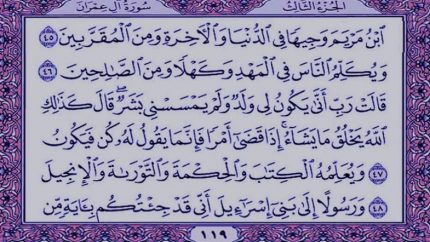 الجُزْءُ الثَّالِثُ سُورَةُ آلِ عِمْرَانَ
ٱبْنُ مَرْيَمَ وَجِيهًا فِي ٱلدُّنْيَا وَٱلْأَخِرَةِ وَمِنَ ٱلْمُقَرَّبِينَ ٤٥
وَيُكَلِّمُ ٱلنَّاسَ فِي ٱلْمَهْدِ وَكَهْلًا وَمِنَ ٱلصَّٰلِحِينَ ٤٦
قَالَتْ رَبِّ أَنَّىٰ يَكُونُ لِي وَلَدٌ وَلَمْ يَمْسَسْنِي بَشَرٌ ۖ قَالَ كَذَٰلِكِ
ٱللَّهُ يَخْلُقُ مَا يَشَآءُ ۚ إِذَا قَضَىٰٓ أَمْرًا فَإِنَّمَا يَقُولُ لَهُۥ كُن فَيَكُونُ
٤٧ وَيُعَلِّمُهُ ٱلْكِتَٰبَ وَٱلْحِكْمَةَ وَٱلتَّوْرَىٰةَ وَٱلْإِنجِيلَ
٤٨ وَرَسُولًا إِلَىٰ بَنِيٓ إِسْرَٰٓءِيلَ أَنِّي قَدْ جِئْتُكُم بِـَٔايَةٍ مِّن
١١٩